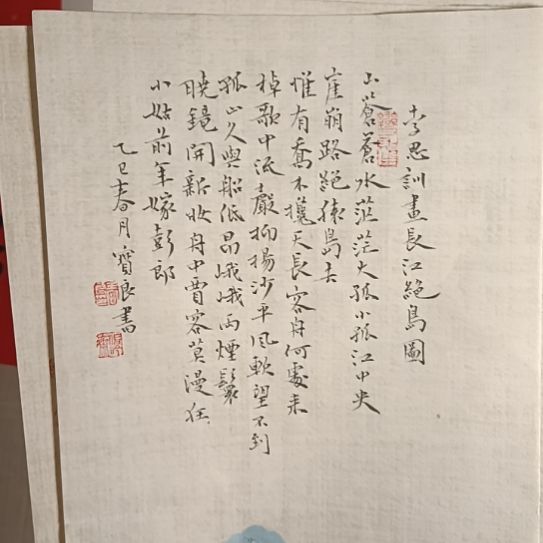 李思訓畫長江絕島圖
山蒼蒼水茫茫大孤小孤江中央
崖崩路絕猿鳥去
惟有喬木攙天長客舟何處來
棹歌中流聲抑揚沙平風軟望不到
孤山久與船低昂峨峨兩煙鬟
曉鏡開新妝舟中賈客莫漫狂
小姑前年嫁彭郎
乙巳春月寶良書